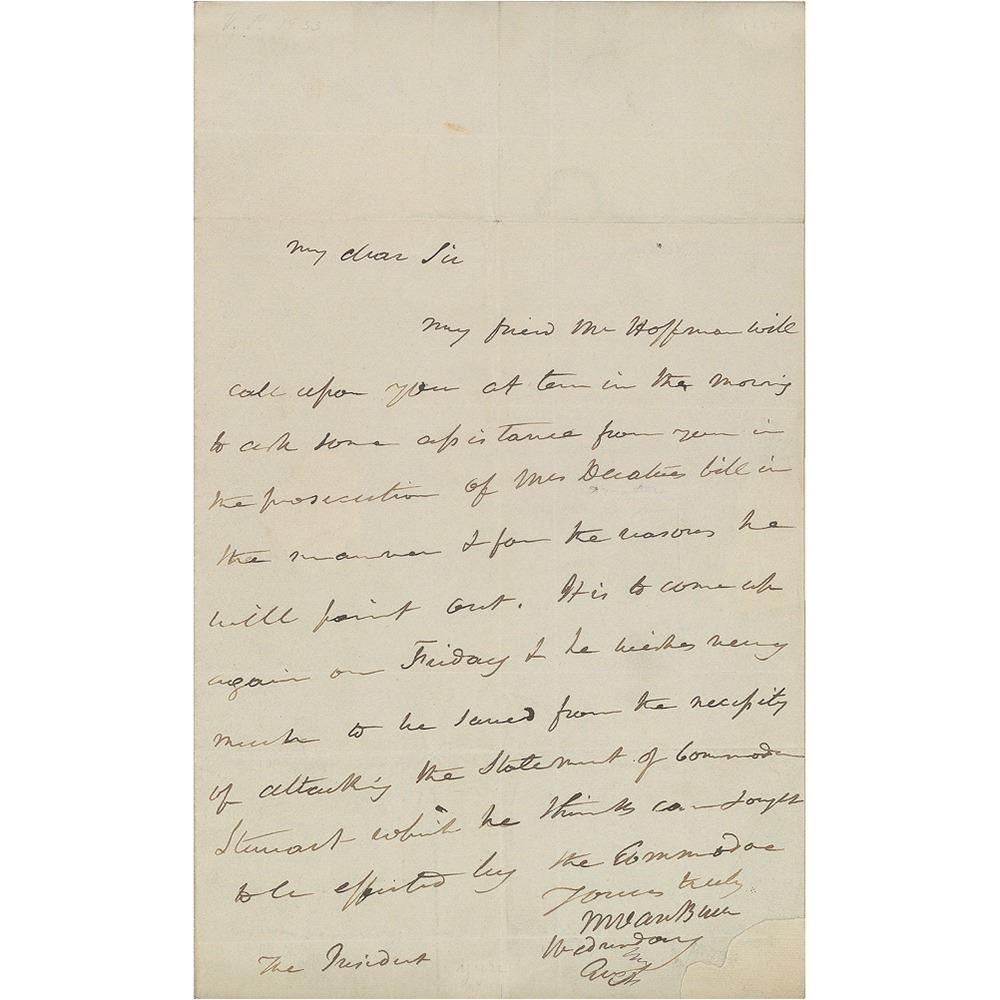 My dear Sir
My friend Mr Hoffman will
call upon you at ten in the morning
to ask some assistance from you in
the prosecution of Mrs Decaturs bill in
the manner & for the reasons he
will point out. It is to come up
again on Friday & he wishes very
much to be saved from the necessity
of attacking the Statement of Commodore
Stewart which he thinks can & ought
to be effected by the Commodore
Yours truly
MVanBuren
Wednesday
The President